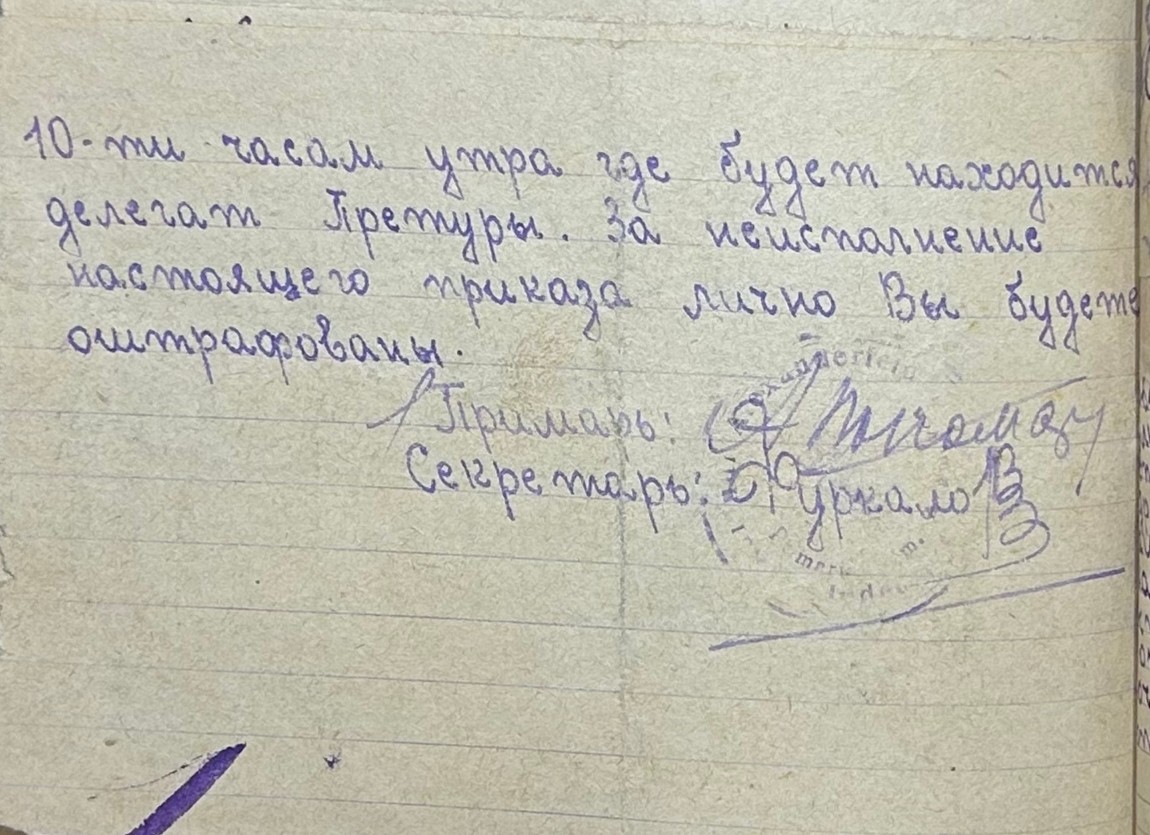 10-ти часам утра где будет находится
делегат Претуры. За неисполнение
настоящего приказа лично Вы будете
оштрафованы.
Примарь:
Секретарь: Цуркало